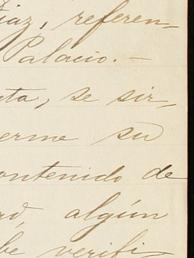 Díaz, referen-
Palacio.-
ta, se sir-
erme su
ontenido de
rá algún
be verifi-